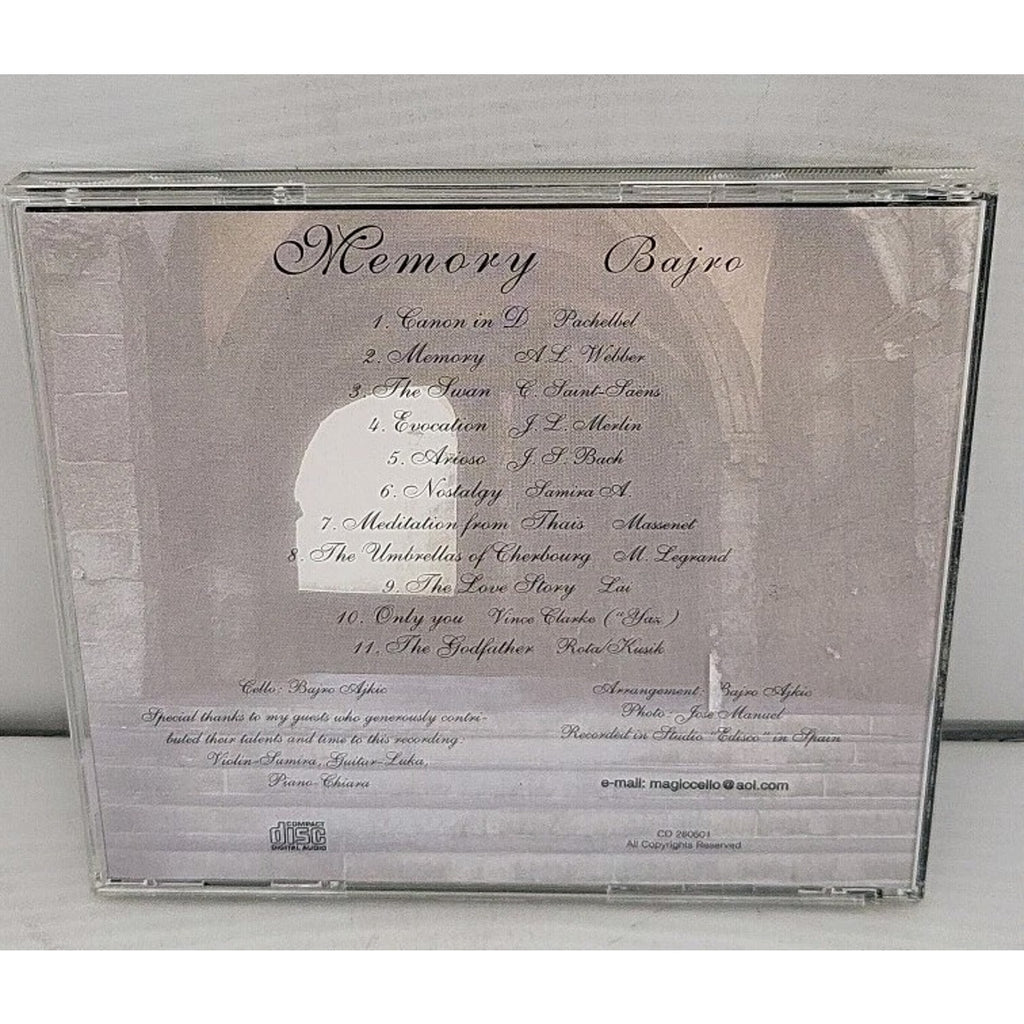 Memory Bajro
1. Canon in D Pachelbel
2. Memory A.L. Webber
3. The Swan C. Saint-Saëns
4. Evocation J.L. Merlin
5. Arioso J.S. Bach
6. Nostalgy Samira A.
7. Meditation from Thais Massenet
8. The Umbrellas of Cherbourg M. Legrand
9. The Love Story Lai
10. Only you Vince Clarke ("Yaz)
11. The Godfather Rota/Kusik
Cello: Bajro Ajkic
Special thanks to my guests who generously contri-
buted their talents and time to this recording:
Violin-Samira, Guitar-Luka,
Piano-Chiara
COMPACT
disc
DIGITAL AUDIO
Arrangement: Bajro Ajkic
Photo: Jose Manuel
Recorded in Studio "Edisco" in Spain
e-mail: magiccello@aol.com
CD 280601
All Copyrights Reserved